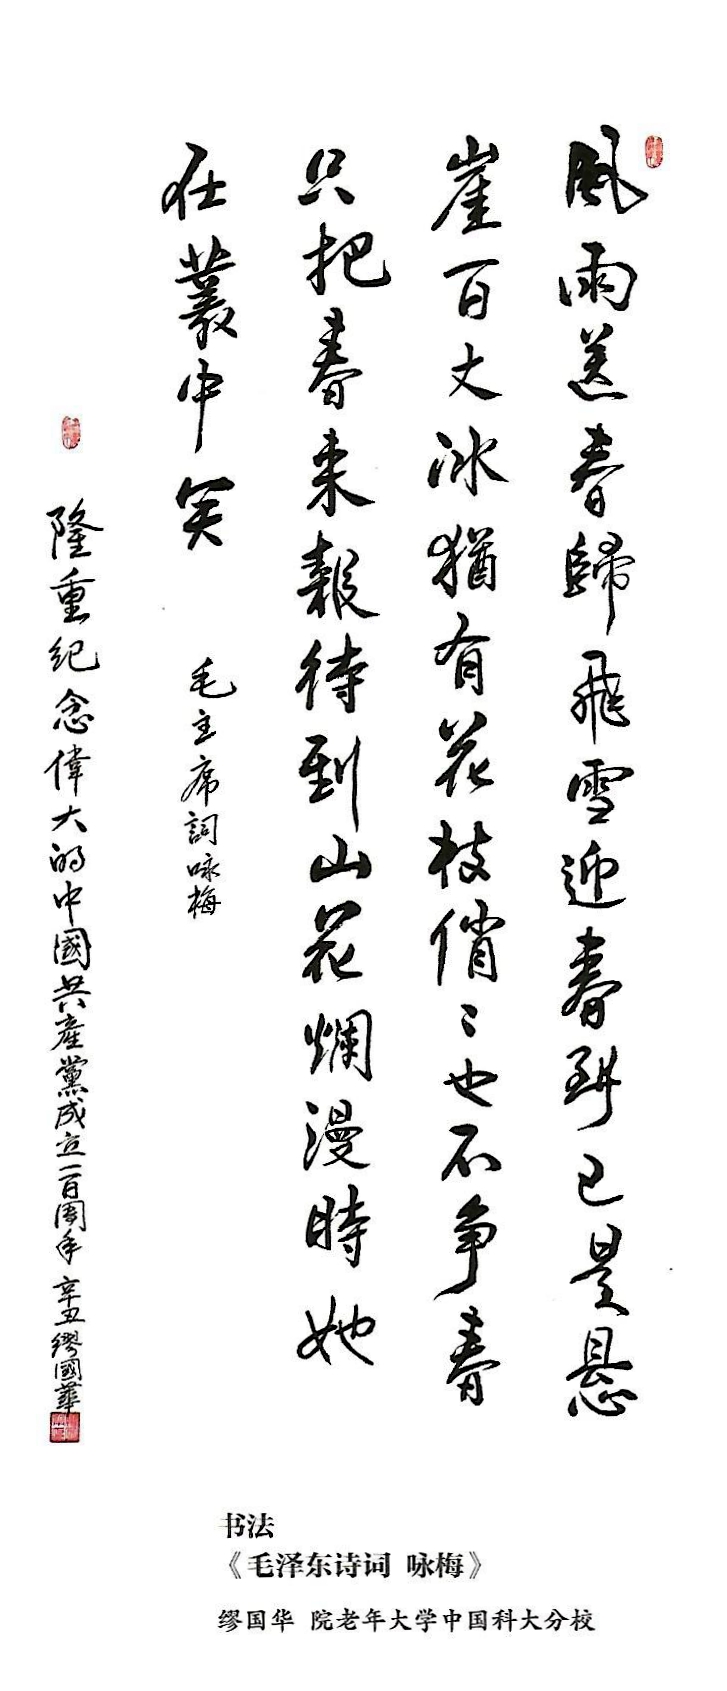 風雨送春歸飛雪迎春到已是悬
崖百丈冰猶有花枝俏〻也不争春
只把春来報待到山花爛漫時她
在叢中笑
毛主席詞咏梅
隆重纪念偉大的中國共產黨成立一百周年 辛丑 繆國華
书法
《毛泽东诗词 咏梅》
缪国华 院老年大学中国科大分校